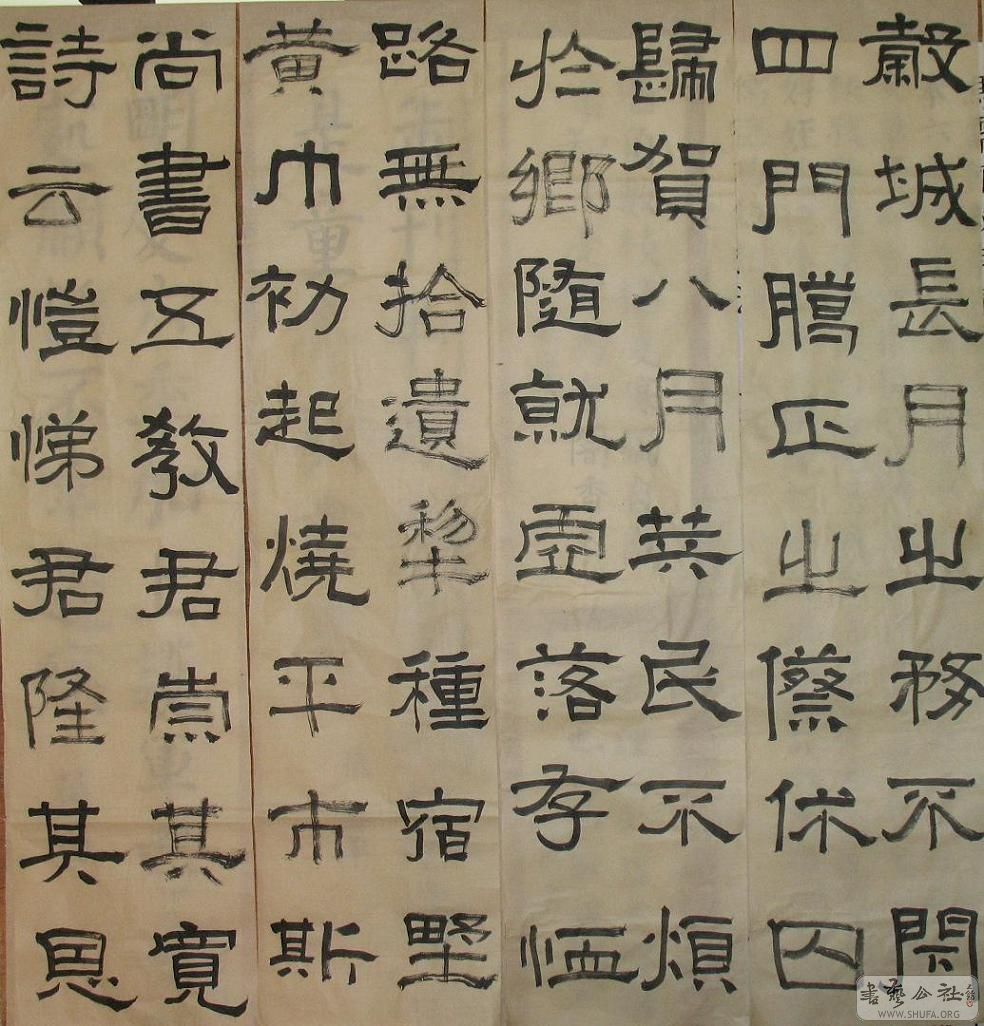 穀城長月之務不閉
四門騰正之僚休囚
歸賀八月筭民不煩
於鄉隨就虛落存恤
路無拾遺犁種宿野
黃巾初起燒平市斯
尚書五教君崇其寬
詩云愷悌君隆其恩
書藝公社
WWW.SHUFA.ORG